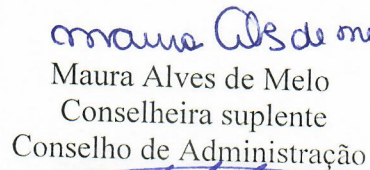 Maura Alves de Me
Maura Alves de Melo
Conselheira suplente
Conselho de Administração